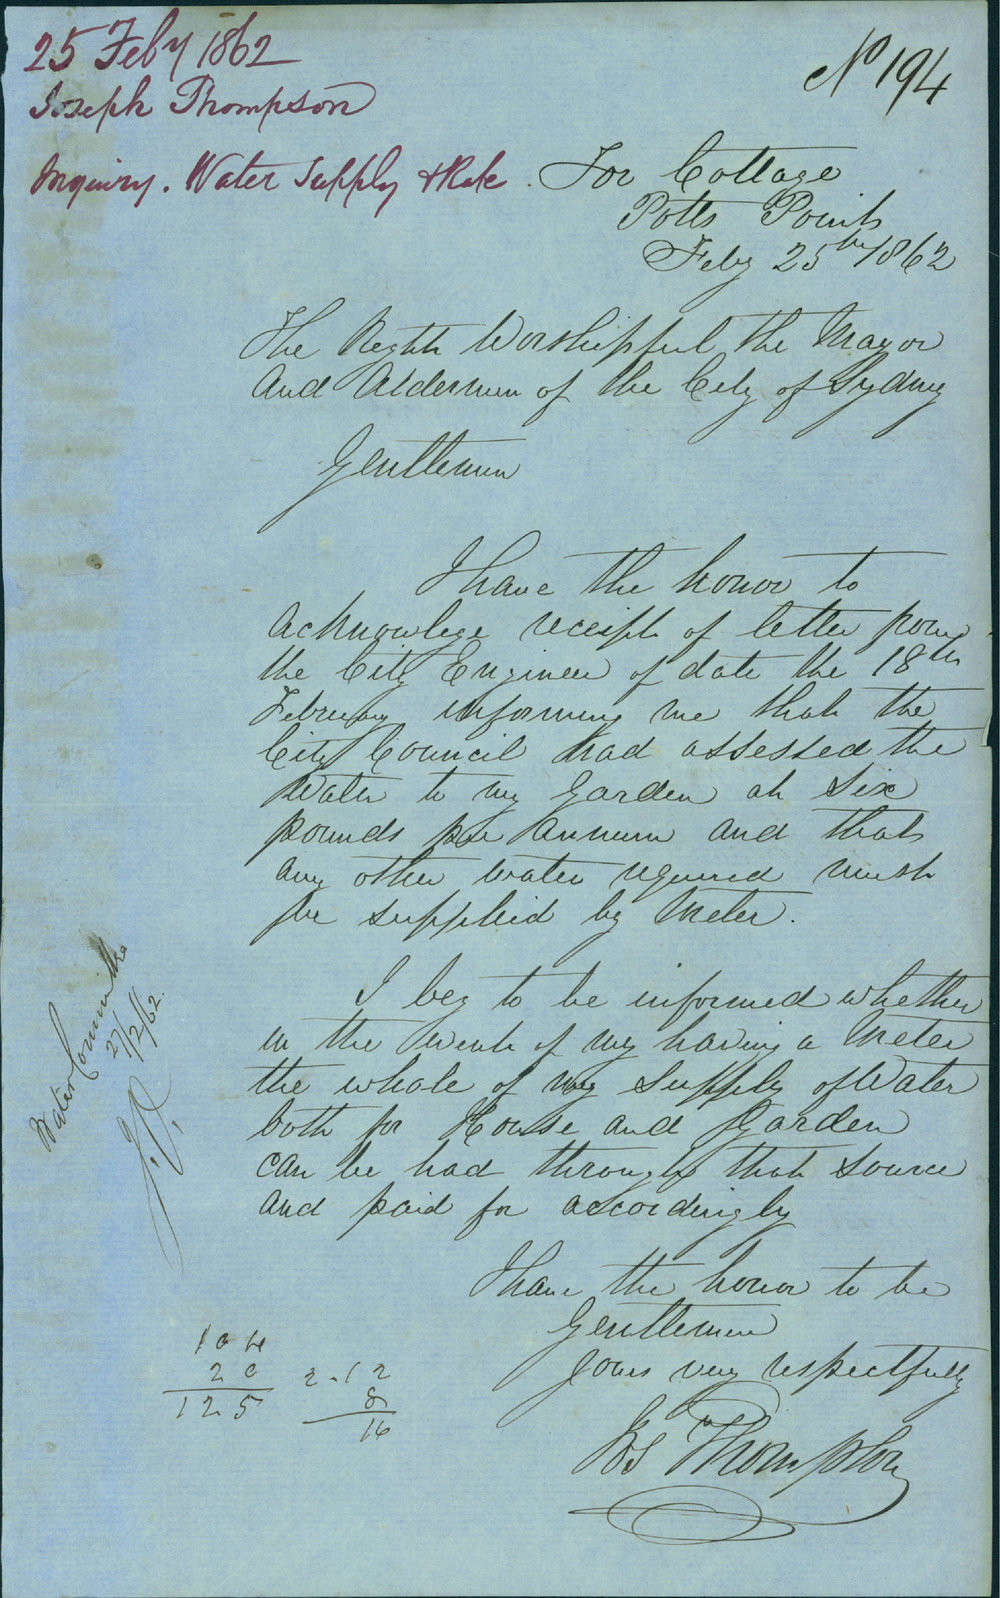 25 Feby 1862
Joseph Thompson
Inquiry. Water Supply & Rate
No 194
Tor Cottage
Potts Point
Feby 25th 1862
The Right Worshipful the Mayor
and Aldermen of the City of Sydney
Gentlemen
I have the honor to
acknowlege receipt of letter from
the City Engineer of date the 18th
February informing me that the
City Council had assessed the
Water to my Garden at Six
pounds per Annum and that
any other water required must
be supplied by Meter.
I beg to be informed whether
in the event of my having a Meter
the whole of my Supply of Water
both for House and Garden
can be had through that source
and paid for accordingly
I have the honor to be
Gentlemen
Yours very respectfully
Jos Thompson
Water Committee
27/2/62.
2 0
1 2.5
2.12
8
16